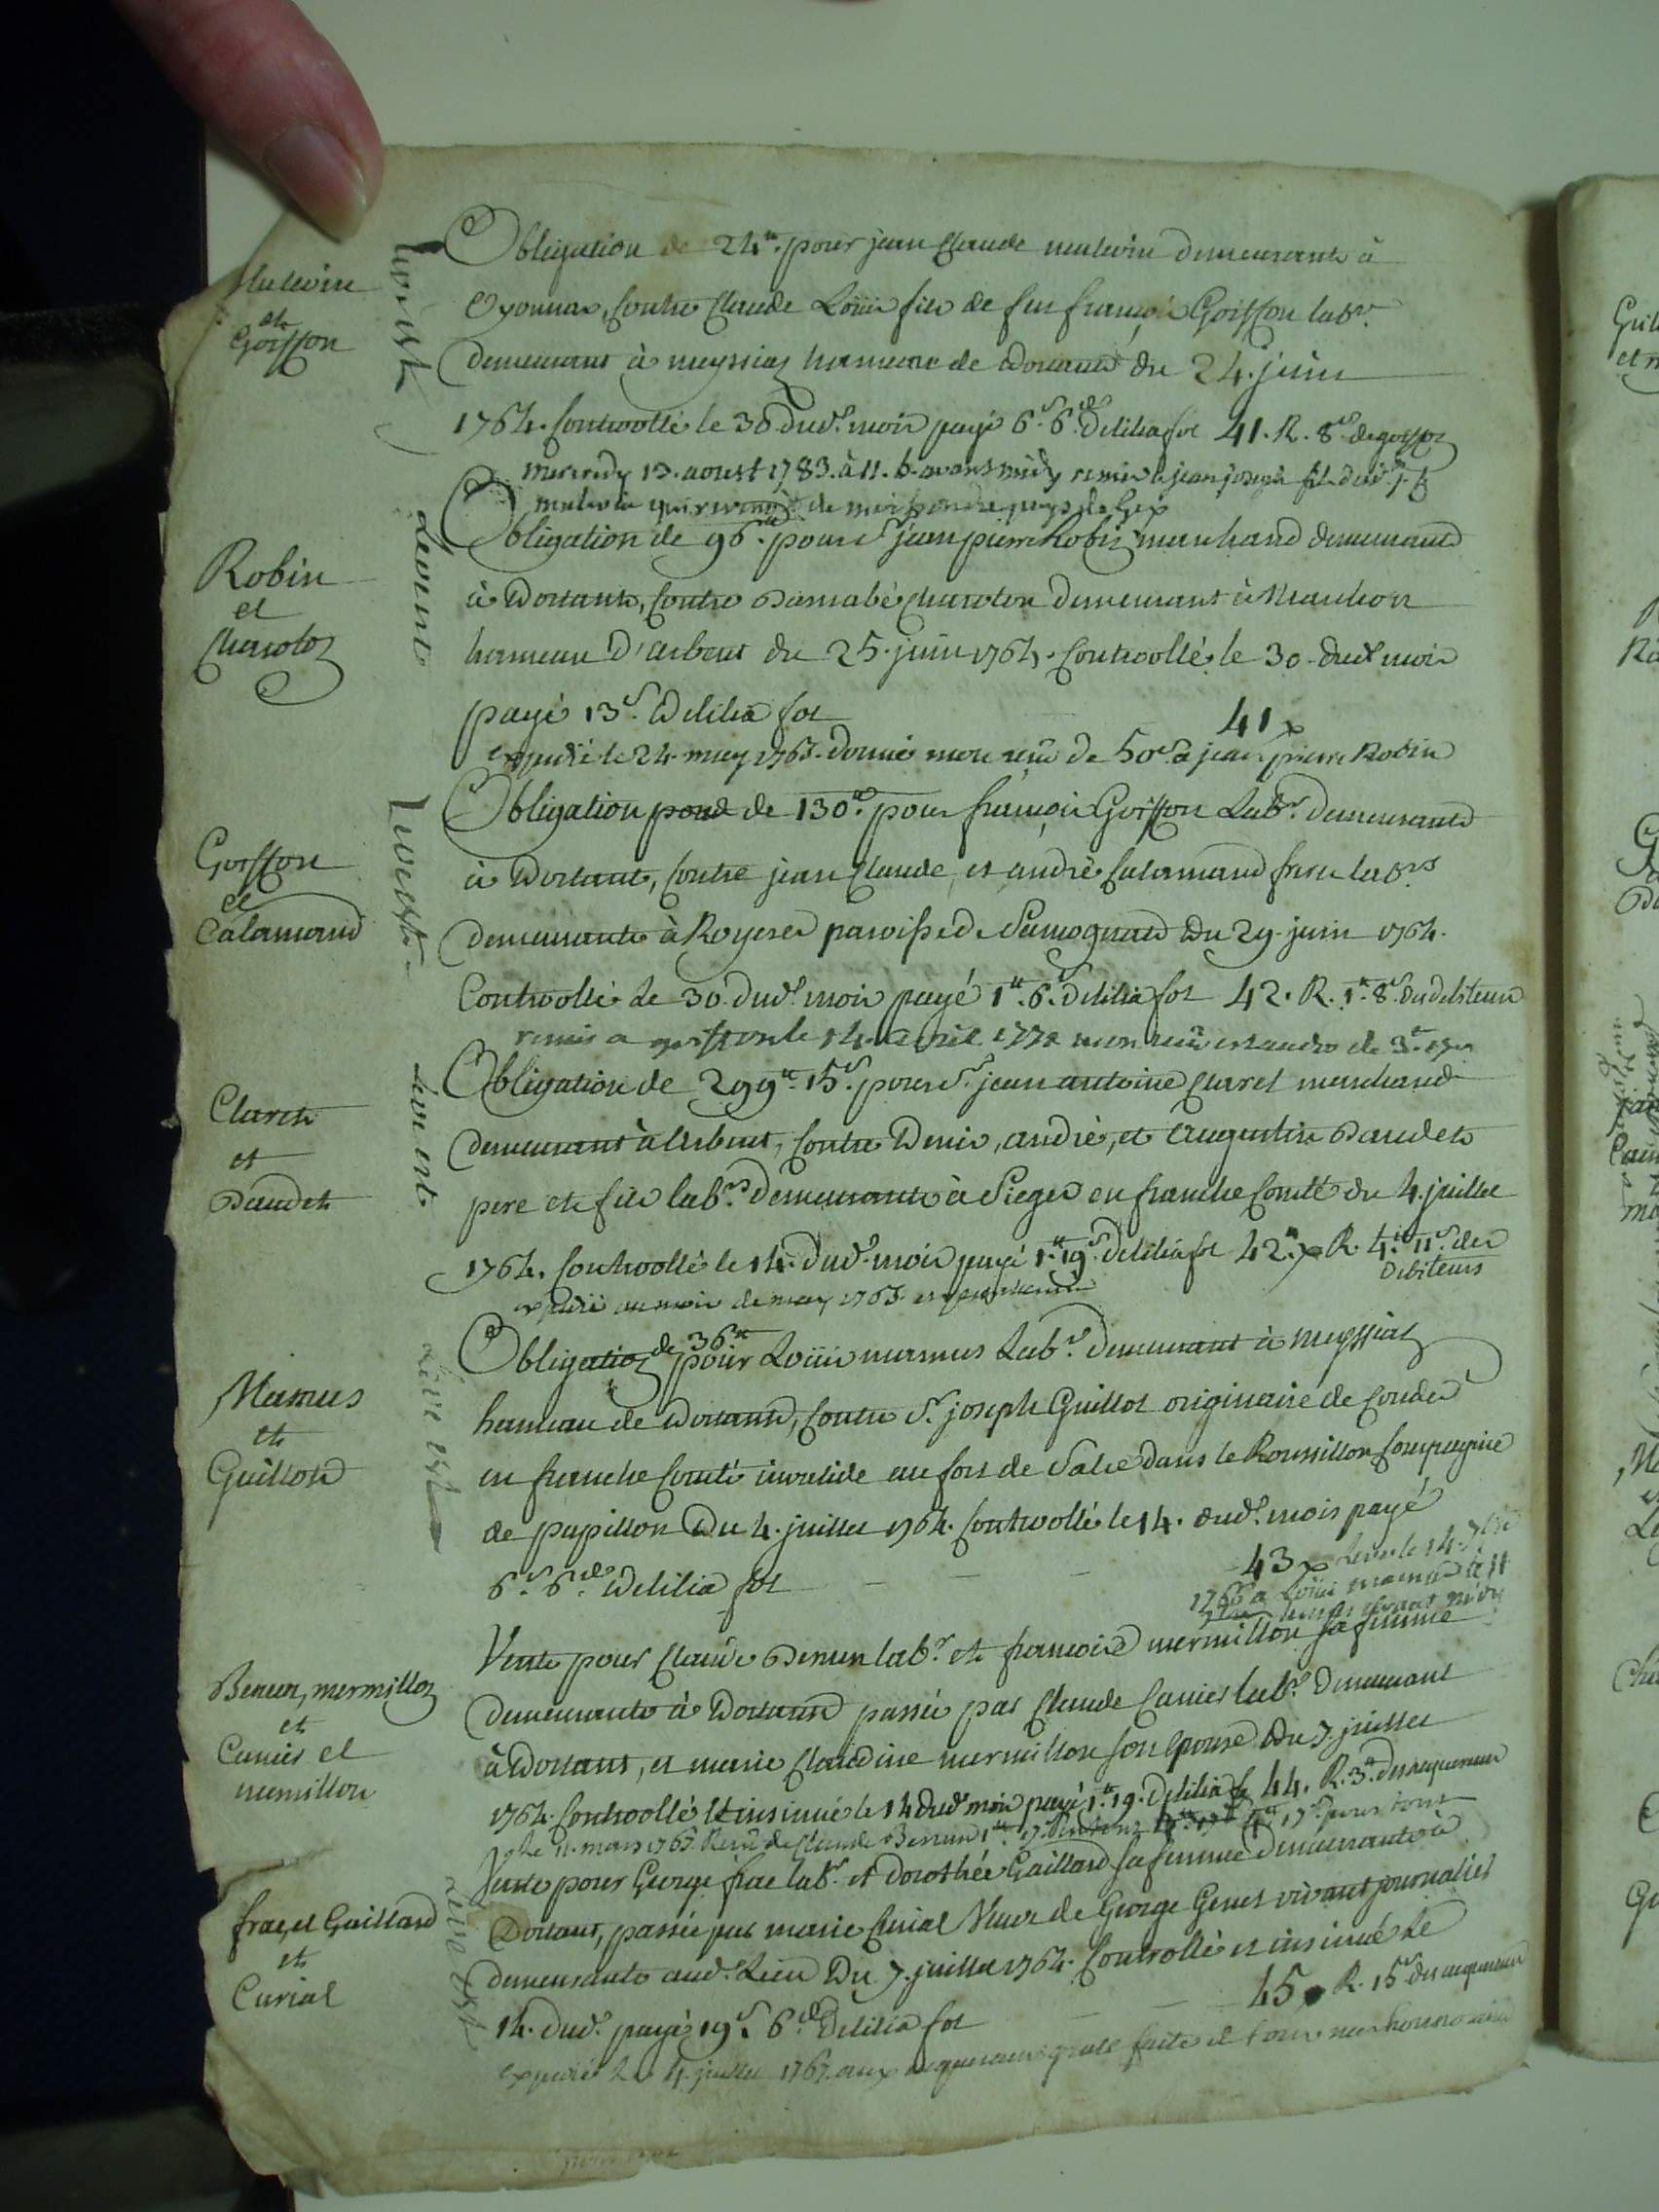 Mulevin
et
Goisson
Obligation de 24tt. pour jean Claude mulevin demeurants à
Oyonnax, Contre Claude Loüis fils de feu françois Goisson labr.
demeurant à meyssiaz hameau de Dortand du 24. juin
1764. Controollé le 30. dud. mois payé 6s. 6d. Delilia fol 41. R. 8s. de goisson
mercredy 13. aoust 1783. à 11. h. avant midy remis à jean joseph fils dud. j. C.
mulevin qui de pays de Gex
Robin
et
Charoton
Obligation de 96tt. pour s. jean pierre Robin marchand demeurand
à Dortant, Contre Barnabé Charoton demeurant à Mauhon
hameau D'arbent du 25. juin 1764. Controollé le 30. dud. mois
payé 13s. Delilia fol 41
expedié le 24. may 1765. donné mon reçu de 50s. à jean pierre Robin
Goisson
et
Calamand
Obligation pour de 130tt. pour françois Goisson Labr. demeurand
à Dortant, Contre jean Claude, et andré Calamand frere labrs
demeurants à Rogerer paroisse de Samognat du 29. juin 1764.
Controollé le 30. dud. mois payé 1tt. 6s. Delilia fol 42. R. 1tt. 8s. du debiteur
remis a goisson le 14. avril 1772 mon reçu de 3tt.
Claret
et
Daudet
Obligation de 299tt. 15s. pour S. jean antoine Claret marchand
demeurant à Arbent, Contre Denis, andré, et Augustin Daudet
pere et fils labrs. demeurants à Sieges en franche Comté du 4. juillet
1764. Controollé le 14. dud. mois payé 1tt. 19s. Delilia fol 42. R. 4tt. 11s. des
debiteurs
expedié au mois de may 1765.
Mamus
et
Guillot
Obligation de 36tt pour Loüis mamus Labr. demeurant à meyssiaz
hameau de Dortand, Contre S. joseph Guillot originaire de Condes
en franche Comté invalide au fort de Salse dans le Roussillon Compagnie
de papillon Du 4. juillet 1764. Controollé le 14. dud. mois payé
6s. 6d. Delilia fol 43 Levée le 14. 7bre
1766 a Loüis mamus à 11
avant midy
Benun, mermillon
et
Canier et
mermillon
Vente pour Claude Benun labr. et françoise mermillon sa femme
demeurants à Dortand passée par Claude Canier labr. Demeurant
à Dortant, et marie Claudine mermillon son epouse Du 7 juillet
1764. Controollé et insinué le 14 dud. mois payé 1tt. 19s. Delilia fol 44. R. 3tt. des acquereurs
le 11. mars 1765. Reçu de Claude Benun 1tt. 17s. pour tout
frae, et Gaillard
et
Curial
Vente pour George frae labr. et Dorothée Gaillard sa femme demeurants à
Dortant, passée par marie Curial Veuve de George Genet vivant journalier
demeurante aud. Lieu Du 7. juillet 1764. Controollé et insinué le
14. dud. payé 19s. 6d. Delilia fol 45 R. 15s. des acquereurs
expedié le 4. juillet 1767. aux acquereurs